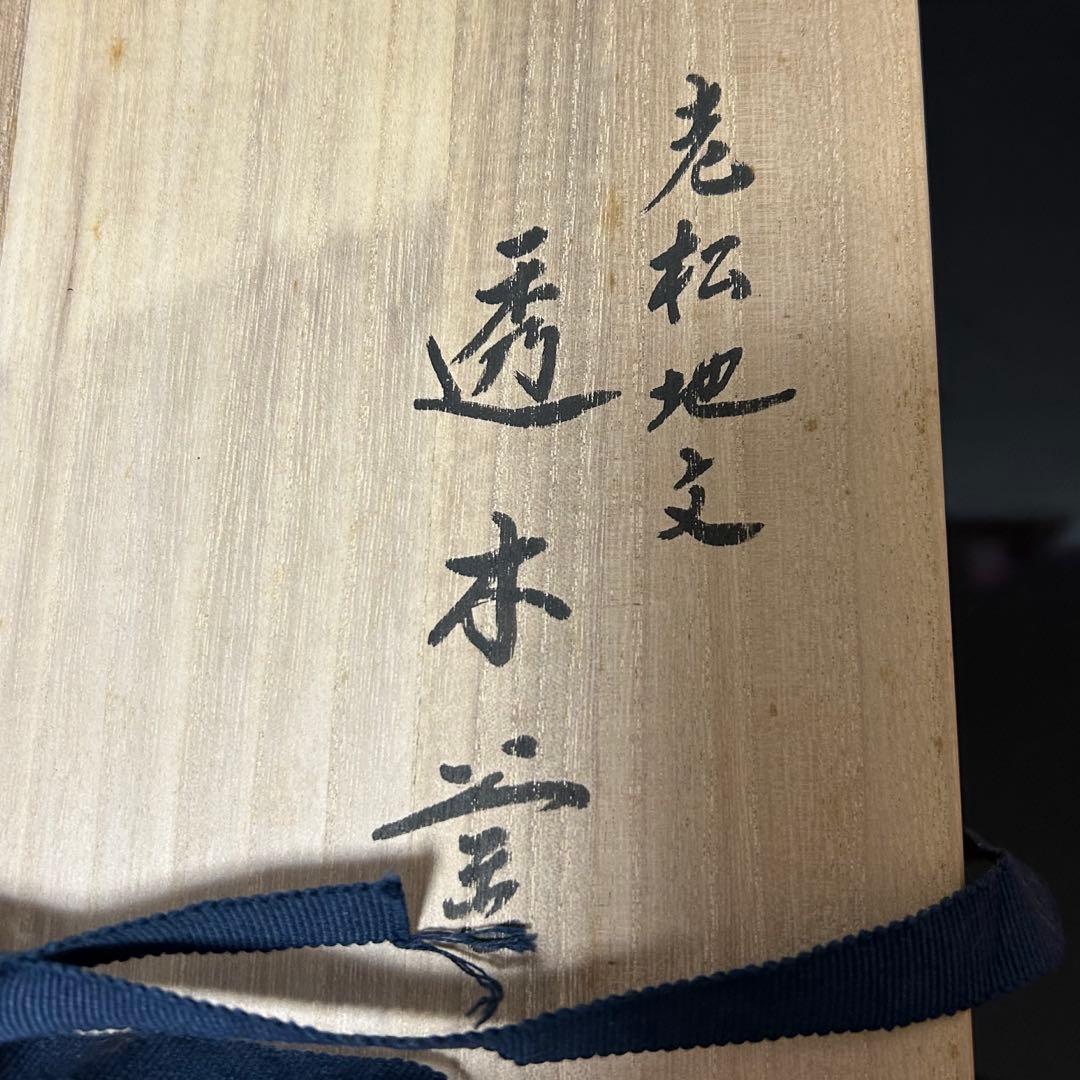 老松地文
透木釜